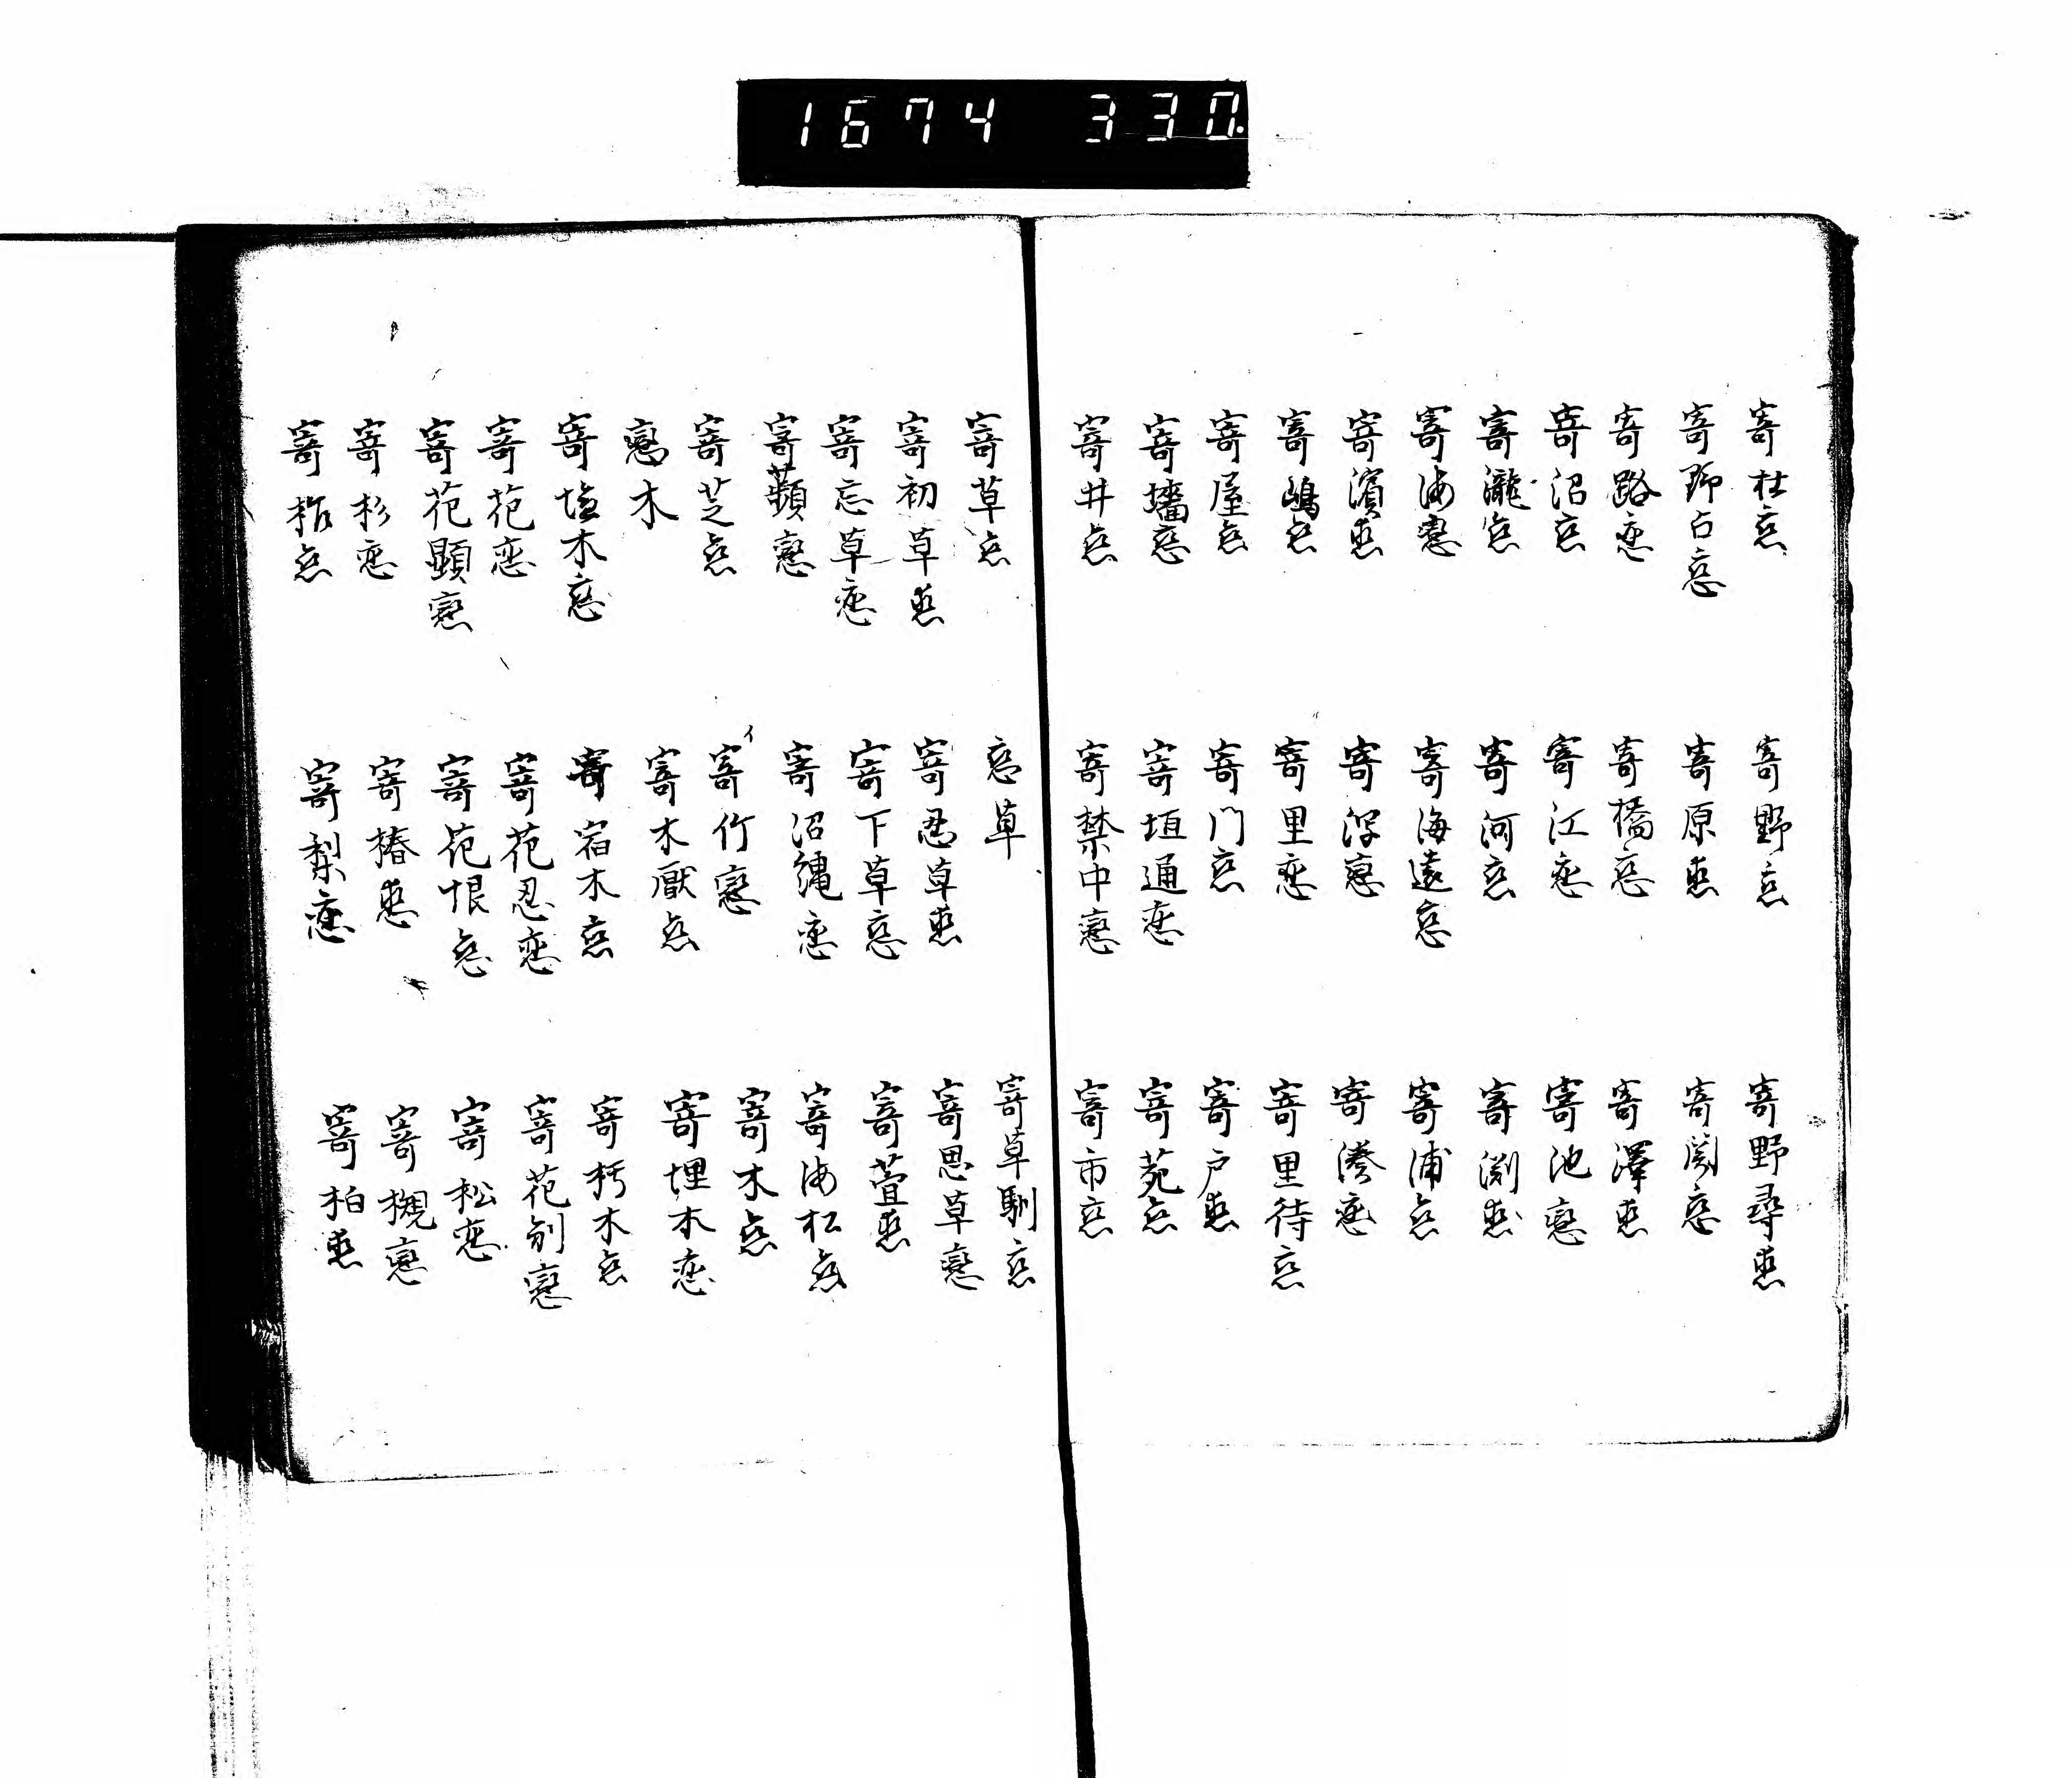 1674 330.
寄杜恋　寄野恋　寄野尋恋
寄野占恋　寄原恋　寄関恋
寄路恋　寄橋恋　寄澤恋
寄沼恋　寄江恋　寄池恋
寄瀧恋　寄河恋　寄渕恋
寄海恋　寄海遠恋　寄浦恋
寄濱恋　寄浮恋　寄湊恋
寄嶋恋　寄里恋　寄里待恋
寄屋恋　寄门恋　寄戸恋
寄墻恋　寄垣通恋　寄苑恋
寄井恋　寄禁中恋　寄市恋
寄草恋　恋草　寄草馴恋
寄初草恋　寄忍草恋　寄思草恋
寄忘草恋　寄下草恋　寄萱恋
寄蘋恋　寄沼縄恋　寄海松恋
寄芝恋　寄竹恋　寄木恋
恋木　寄木厭恋　寄埋木恋
寄塩木恋　寄宿木恋　寄朽木恋
寄花恋　寄花忍恋　寄花別恋
寄花顕恋　寄花恨恋　寄松恋
寄杉恋　寄椿恋　寄槻恋
寄柞恋　寄梨恋　寄柏恋